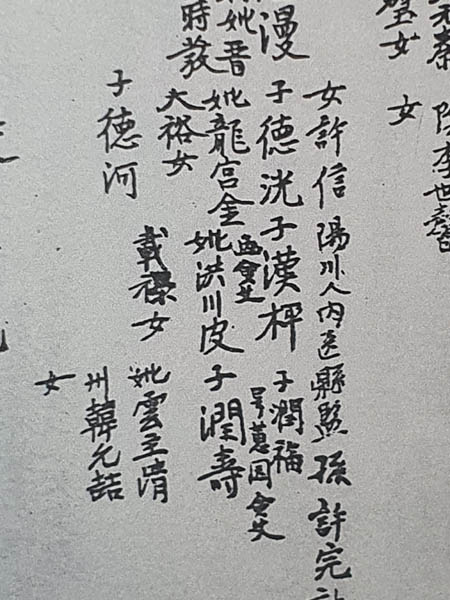 女
女許信陽川人內医縣監孫許完
漫子德洸子漢枰子潤福
画史号蕙園会史
妣晋
妣龍宮金妣洪川皮子潤壽
時敎大裕女
子德河載禄女
州韓允喆
女